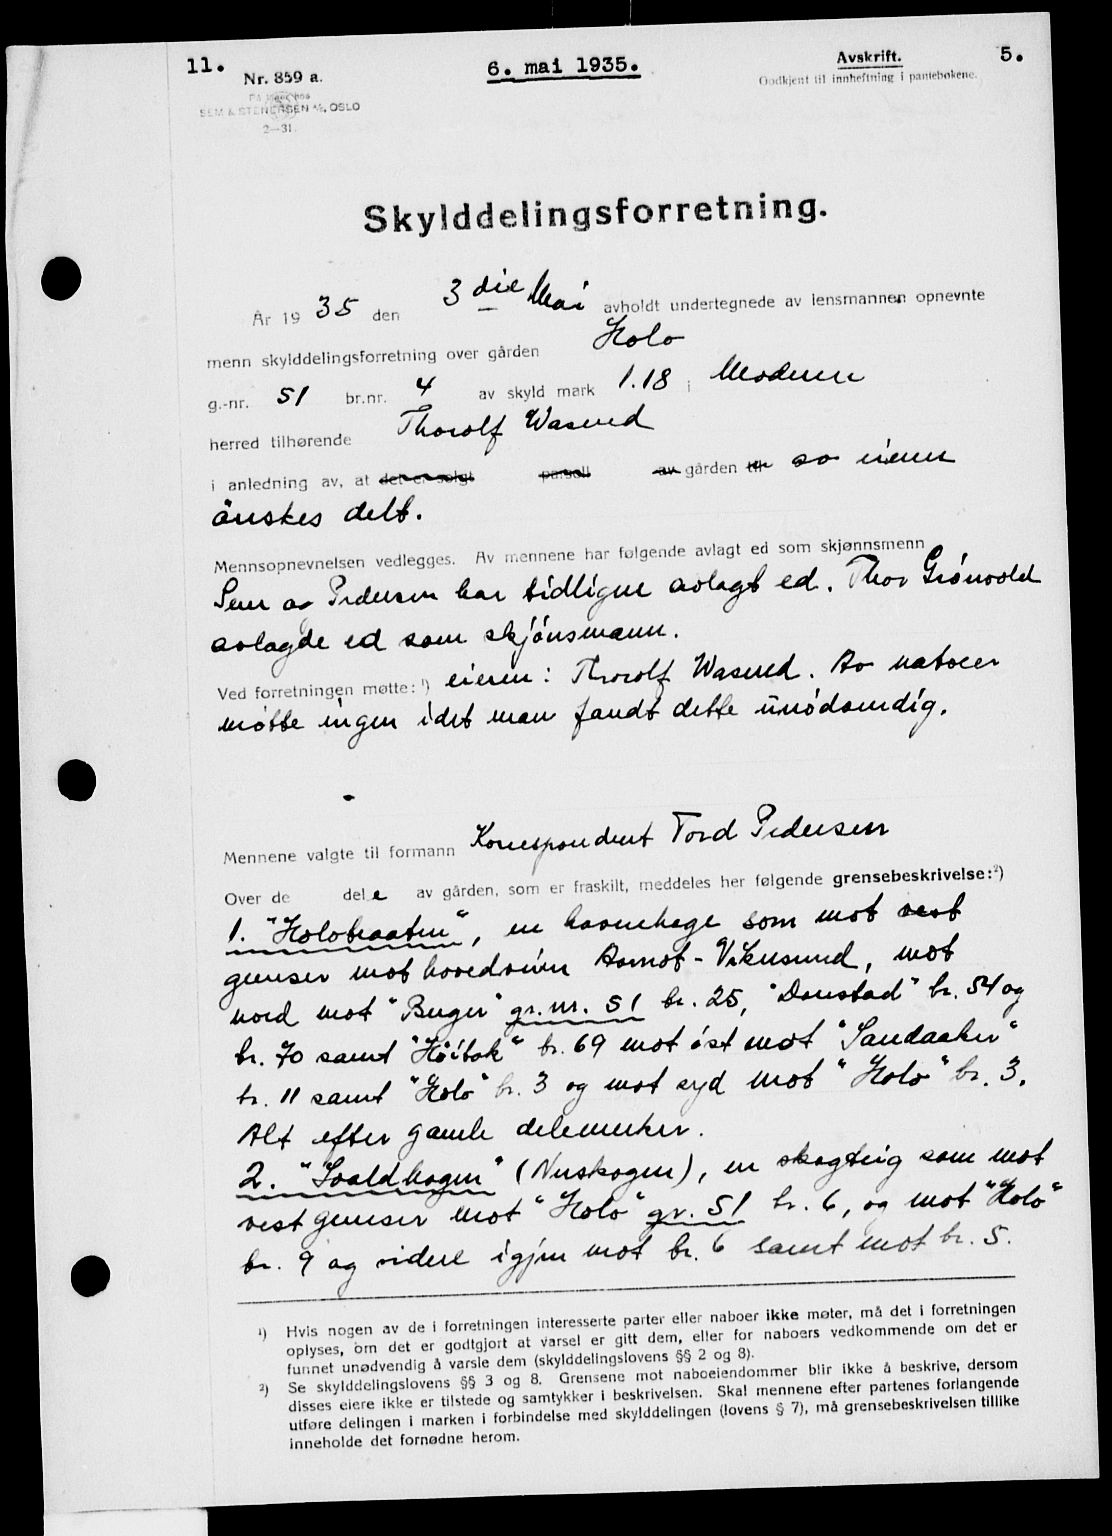 11.
Nr. 859 a.
6. mai 1935.
Avskrift.
5.
Godkjent til innheftning i pantebøkene.
SEM & STENERSEN A/S, OSLO
2—31.
Skylddelingsforretning.
År 1935 den 3die Mai avholdt undertegnede av lensmannen opnevnte
menn skylddelingsforretning over gården Holo
g.-nr. 51 br.nr. 4 av skyld mark 1.18 i Modum
herred tilhørende Thorolf Wasrud
i anledning av, at det er solgt parsell av gården til so eieren
önskes delt.
Mennsopnevnelsen vedlegges. Av mennene har følgende avlagt ed som skjønnsmenn
Sem og Pedersen har tidligere avlagt ed. Thor Grönvold
avlagde ed som skjönsmann.
Ved forretningen møtte: ¹) eieren: Thorolf Wasrud. Av naboer
mötte ingen idet man fandt dette unödvendig.
Mennene valgte til formann Korrespondent Tord Pedersen
Over de dele av gården, som er fraskilt, meddeles her følgende grensebeskrivelse:²)
1. "Holobraaten", en havnehage som mot vest
grenser mot hovedveien Aamot - Vikersund, mot
nord mot "Berger" gr. nr. 51 br. 25, "Donstad" br. 54 og
br. 70 samt "Höitok" br. 69 mot öst mot "Sandaaker"
br. 11 samt "Holo" br. 3 og mot syd mot "Holo" br. 3.
Alt efter gamle delemerker.
2. "Svaldhogen" (Nerskogen), en skogteig som mot
vest grenser mot "Holo" gr. 51 br. 6, og mot "Holo"
br. 9 og videre igjen mot br. 6 samt mot br. 5.
¹) Hvis nogen av de i forretningen interesserte parter eller naboer ikke møter, må det i forretningen
oplyses, om det er godtgjort at varsel er gitt dem, eller for naboers vedkommende om det er
funnet unødvendig å varsle dem (skylddelingslovens §§ 2 og 8).
²) Se skylddelingslovens §§ 3 og 8. Grensene mot naboeiendommer blir ikke å beskrive, dersom
disses eiere ikke er tilstede og samtykker i beskrivelsen. Skal mennene efter partenes forlangende
utføre delingen i marken i forbindelse med skylddelingen (lovens § 7), må grensebeskrivelsen tillike
inneholde det fornødne herom.